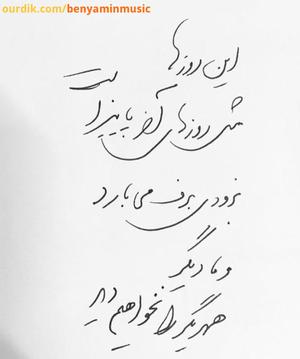 ourdik.com/benyaminmusic
این روزها
مثل روزهای آخر پاییز است
بزودی برف می بارد
و ما دیگر
همدیگر را نخواهیم دید